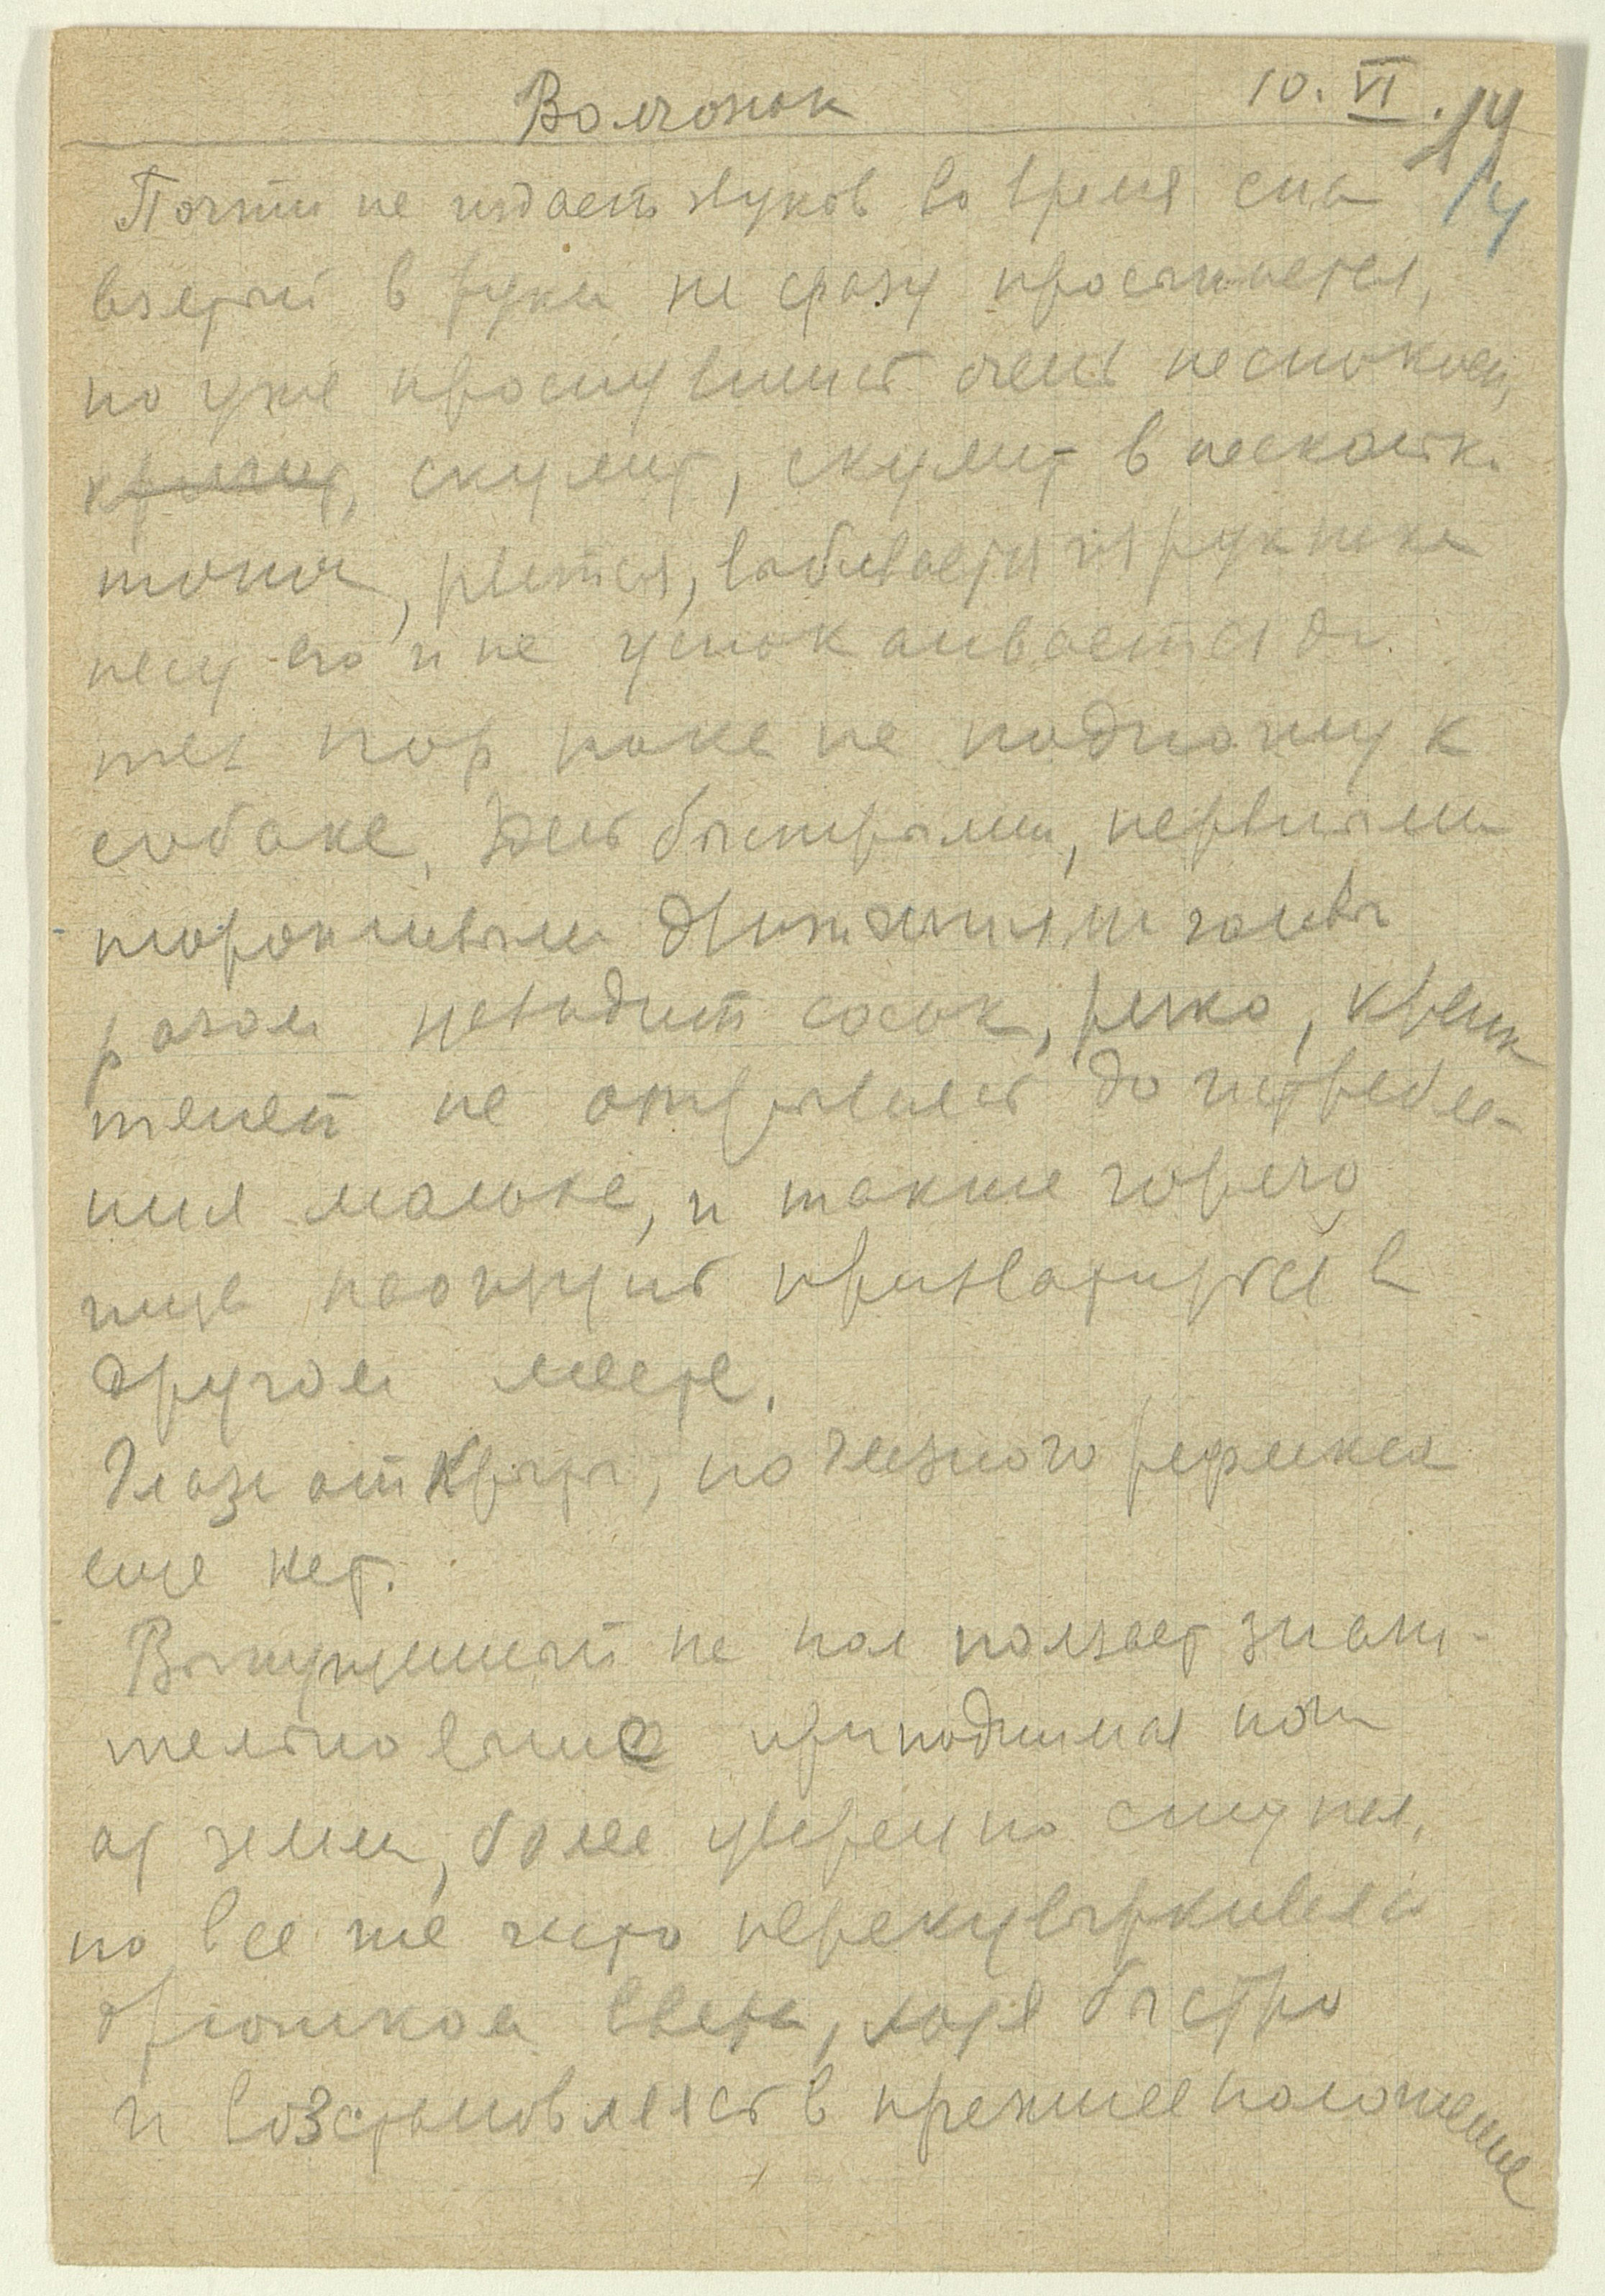 Волчонок 10.VI.
14
14
Почти не издает звуков во время сна
взятый в руки не сразу просыпается,
но уже проснувшись очень неспокоен,
кричит, скулит, скулит в несколько
тонов, рвется, выбивается из рук пока
несу его и не успокаивается до
тех пор пока не подношу к
собаке. быстрыми, нервными
торопливыми движениями головы
разом находит сосок, резко, крепко
тянет не отрываясь до истребле-
ния молока, и также горячо
ища присхватиться в
другом месте.
Глаза открыты, но глазного рефлекса
еще нет.
Выпущенный на пол ползает значи-
тельно выше приподнимая ноги
от земли, более уверенно ступая,
но все же часто перекувыркиваясь
брюшком вверх, хотя быстро
и возстановляясь в прежнее положение